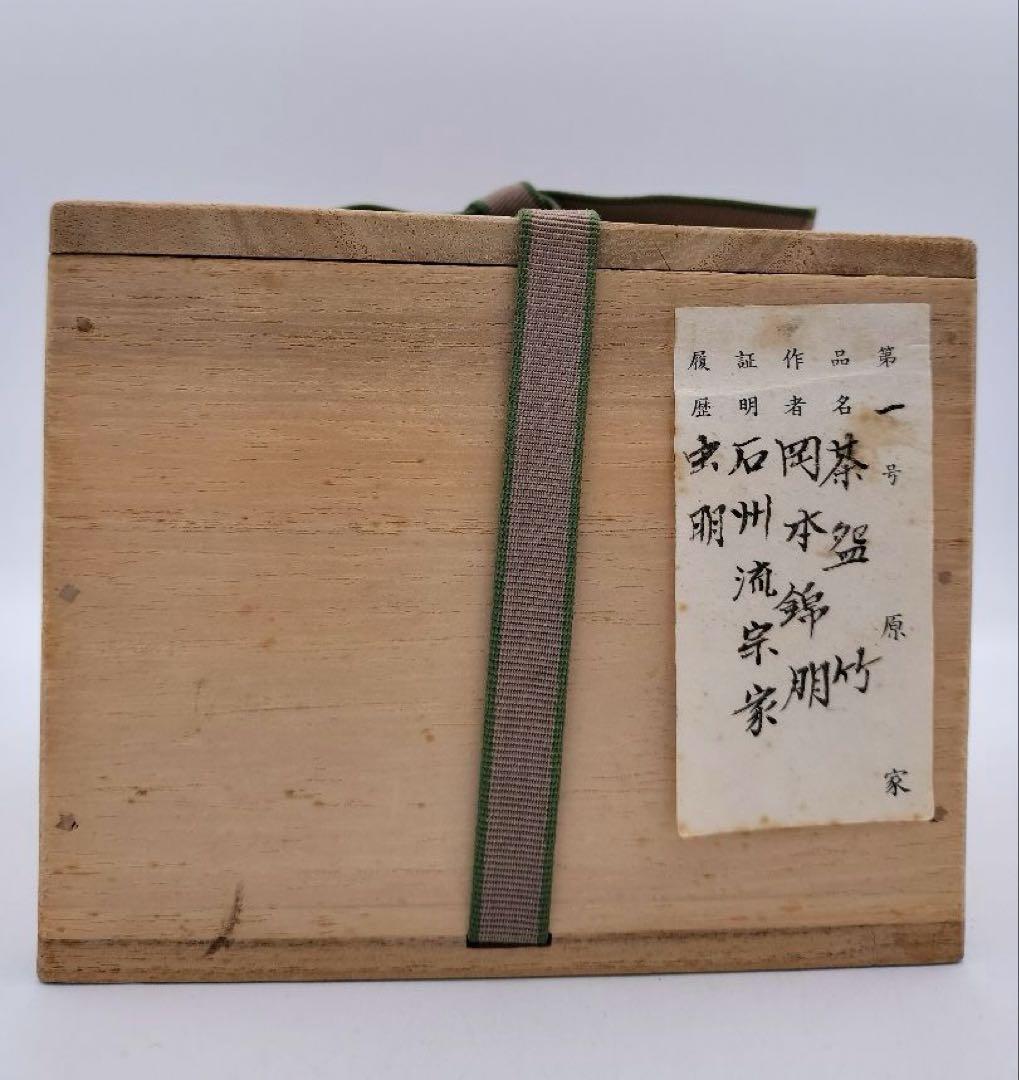 第一号 原家
品名 茶盌 竹
作者 岡本錦朋
証明 石州流宗家
履歴 虫明